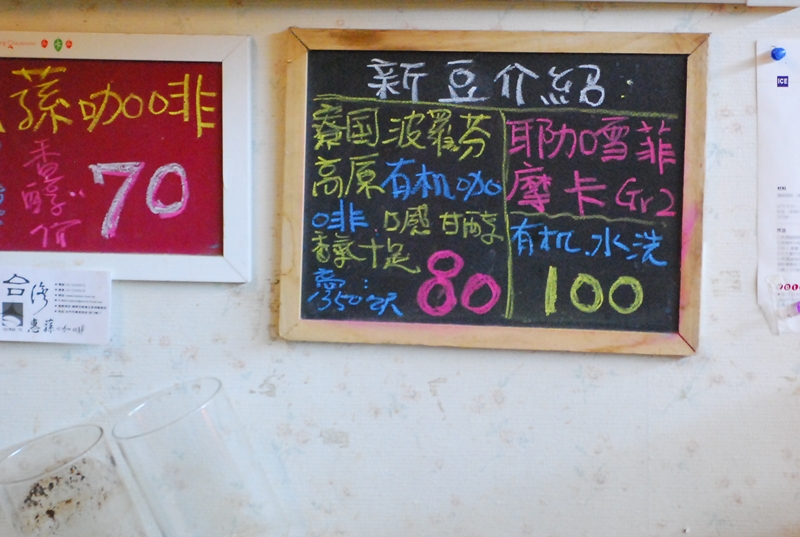 蓀咖啡
香醇
價
70
台灣
惠蓀咖啡
新豆介紹
寮国波羅芬
高原有机咖
啡.口感甘醇
香氣十足
高:
1350公尺
80
耶加雪菲
摩卡Gr2
有机.水洗
100
ICE